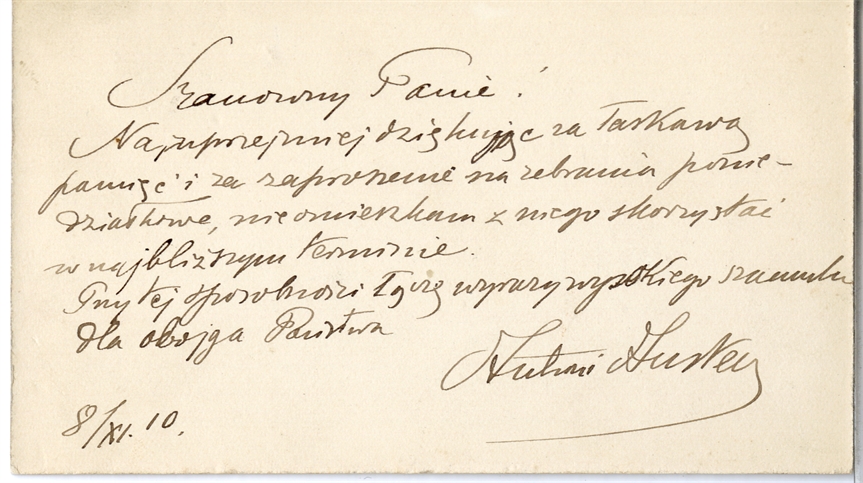 Szanowny Panie!
Najuprzejmiej dziękując za łaskawą
pamięć i za zaproszenie na zebrania ponie-
działkowe, nieomieszkam z niego skorzystać
w najbliższym terminie.
Przy tej sposobności łączę wyrazy wysokiego szacunku
dla obojga Państwa
Antoni
8/XI.10.